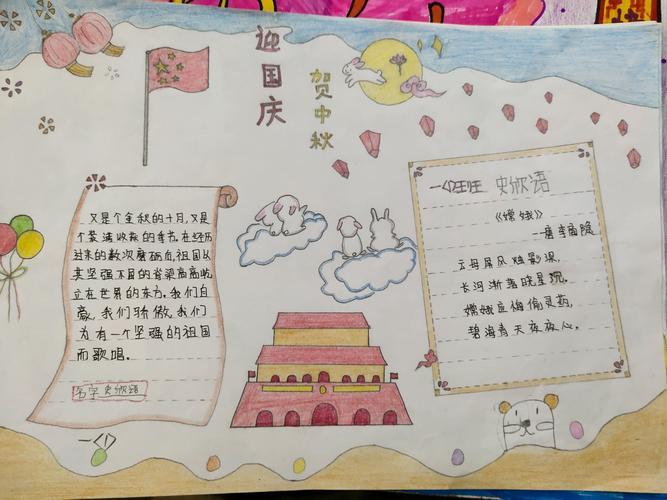 迎国庆
贺中秋
又是个金秋的十月,又是
个装满收获的季节.在经历
过来的数次磨砺血,祖国以
其坚强不屈的脊梁高高屹
立在世界的东方.我们自
豪,我们骄傲,我们
为有一个坚强的祖国
而歌唱.
名字 史欣语
一<1>
一<1>班 史欣语
《嫦娥》
—唐李商隐
云母屏风烛影深,
长河渐落晓星沉.
嫦娥应悔偷灵药,
碧海青天夜夜心.